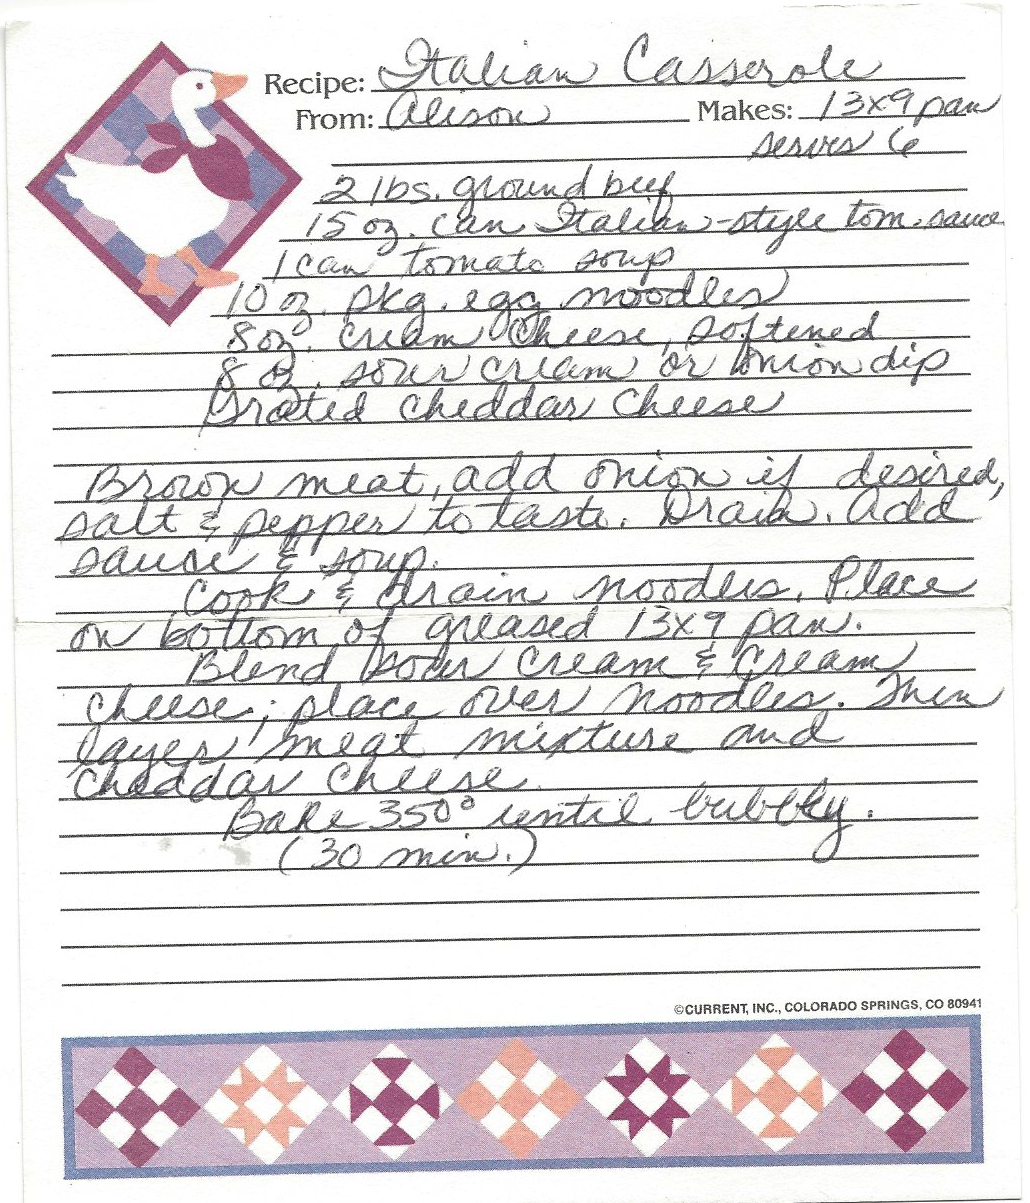 Recipe: Italian Casserole
From: Alison Makes: 13x9 pan
serves 6
2 lbs. ground beef
15 oz. can Italian-style tom. sauce
1 can tomato soup
10 oz. pkg. egg noodles
8 oz. cream cheese, softened
8 oz. sour cream or onion dip
Grated cheddar cheese
Brown meat, add onion if desired,
salt & pepper to taste. Drain. Add
sauce & soup.
Cook & drain noodles. Place
on bottom of greased 13x9 pan.
Blend sour cream & cream
cheese; place over noodles. Then
layer meat mixture and
cheddar cheese.
Bake 350° until bubbly.
(30 min.)
©CURRENT, INC., COLORADO SPRINGS, CO 80941